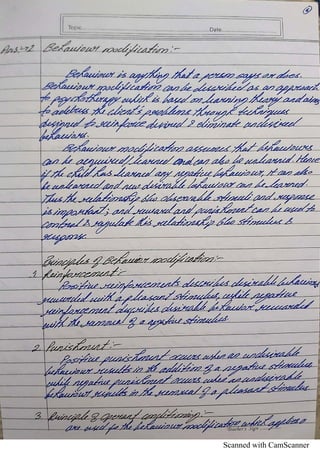 5
Topic
Date
Ans:-2 Behaviour modification:-
Behaviour is anything that a person says or does.
Behaviour modification can be described as an approach
to psychotherapy which is based on learning theory and aims
to address the client's problems through techniques
designed to reinforce desired & eliminate undesired
behaviours.
Behaviour modification assumes that behaviours
can be acquired/learned and can also be unlearned. Hence
if the child has learned any negative behaviour, it can also
be unlearned and new desirable behaviour can be learned.
Thus the relationship b/w observable stimuli and response
is important; and reward and punishment can be used to
control & regulate this relationship b/w stimulus &
response.
Principles of Behaviour modification:-
1. Reinforcement:-
Positive reinforcements describes desirable behaviour
rewarded with a pleasant stimulus, while negative
reinforcement describes desirable behaviour rewarded
with the removal of a negative stimulus
2. Punishment:-
Positive punishment occurs when an undesirable
behaviour results in the addition of a negative stimulus
while negative punishment occurs when an undesirable
behaviour results in the removal of a pleasant stimulus.
3. Principle of operant conditioning:-
are used for the behaviour modification which
Scanned with CamScanner